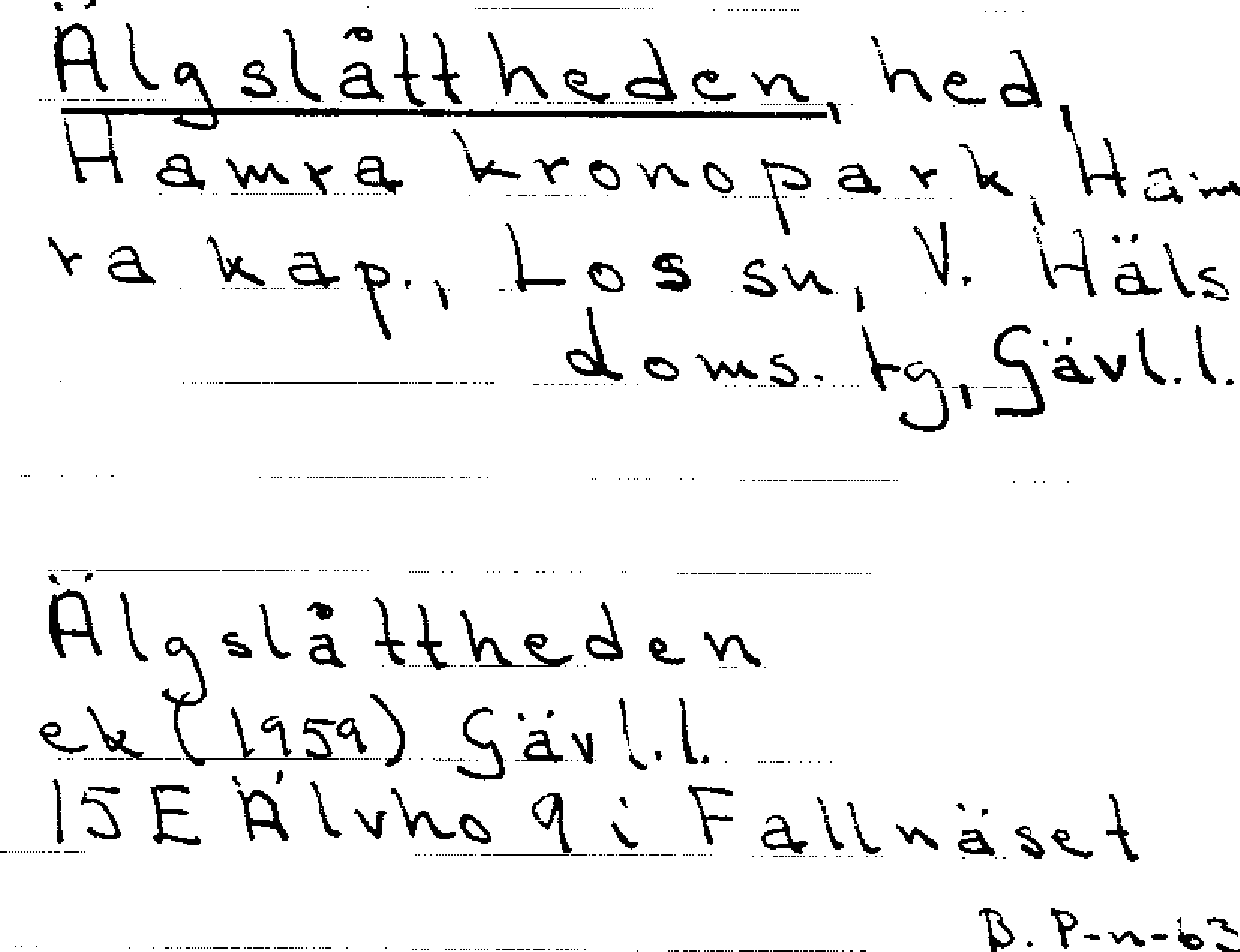 Älgslåttheden, hed,
Hamra kronopark, Ham
ra kap., Los sn, V. Häls
doms. tg, Gävl.l.
Älgslåttheden
ek (1959) Gävl.l.
15E Älvho 9i Fallnäset
B. P-n-63